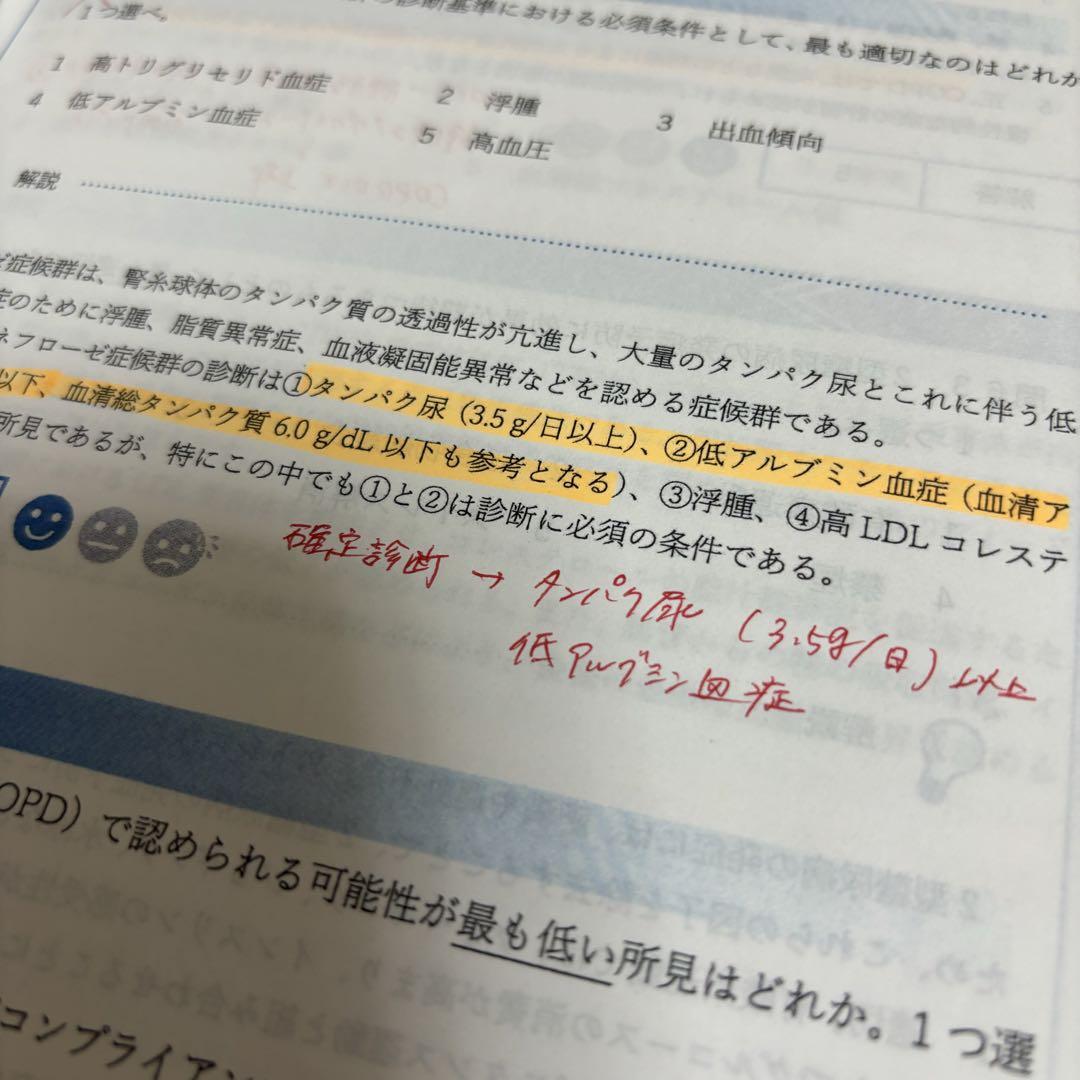 の診断基準における必須条件として、最も適切なのはどれか
1つ選べ。
1 高トリグリセリド血症
2 浮腫
3 出血傾向
4 低アルブミン血症
5 高血圧
解説
ゼ症候群は、腎糸球体のタンパク質の透過性が亢進し、大量のタンパク尿とこれに伴う低
症のために浮腫、脂質異常症、血液凝固能異常などを認める症候群である。
ネフローゼ症候群の診断は①タンパク尿(3.5 g/日以上)、②低アルブミン血症(血清ア
以下、血清総タンパク質 6.0 g/dL 以下も参考となる)、③浮腫、④高 LDL コレステ
所見であるが、特にこの中でも①と②は診断に必須の条件である。
確定診断 → タンパク尿 (3.5g/日)以上
低アルブミン血症
OPD)で認められる可能性が最も低い所見はどれか。1つ選
コンプライアン